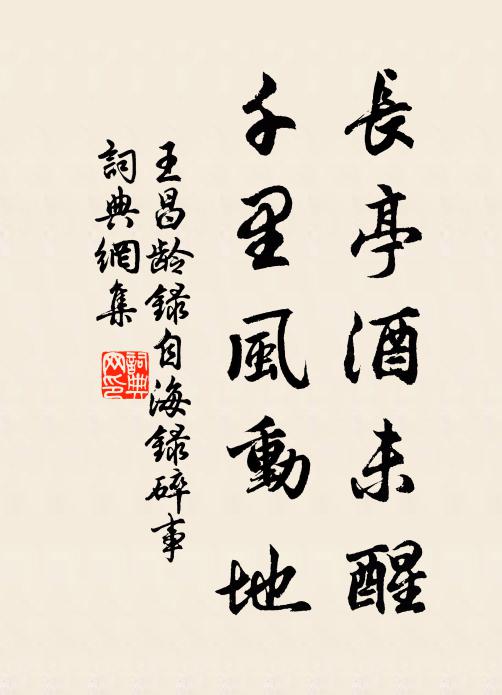 長亭酒未醒
千里風動地
王昌齡錄自海錄碎事
詞典網集
詞典網印